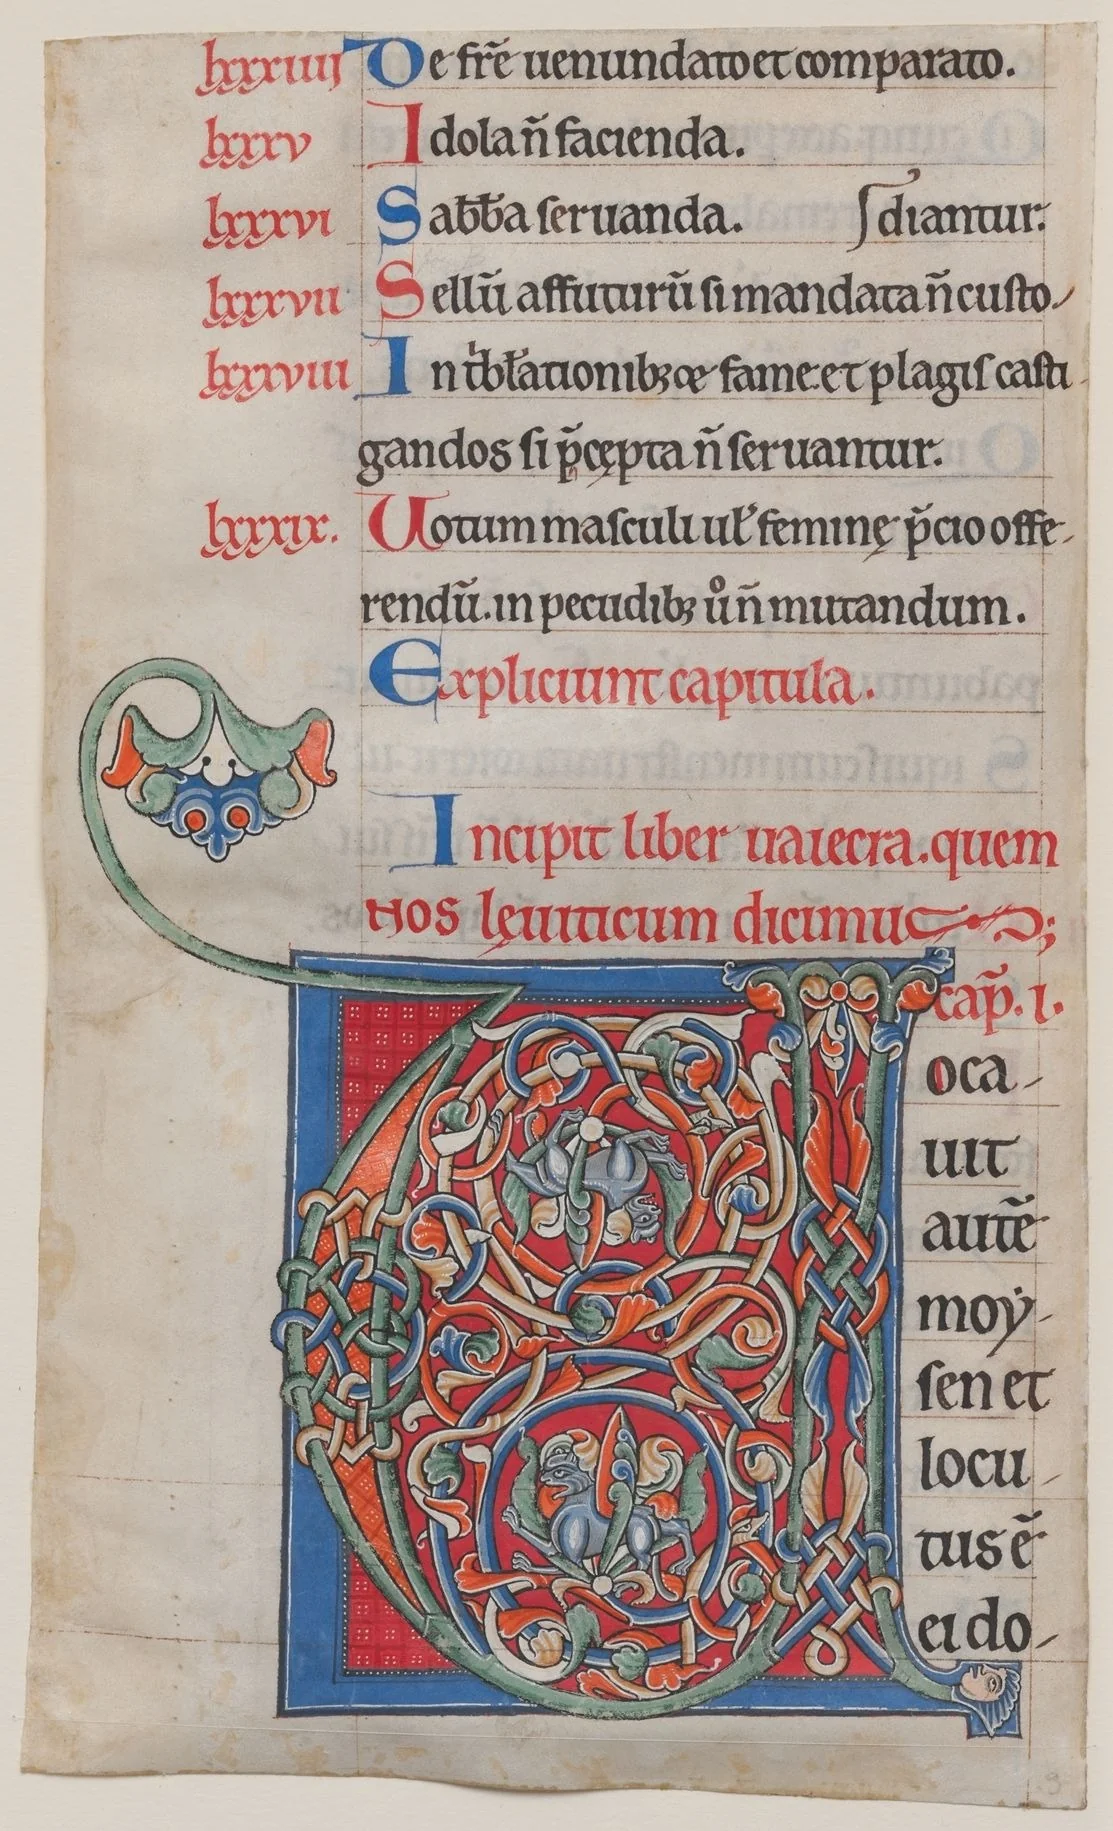 lxxxiiii De fr̄e uenundato et comparato.
lxxxv Idola n̄ facienda.
lxxxvi Sab̄b̄a seruanda. ſdiantur.
lxxxvii Sellū affuturū si mandata n̄ custo-
lxxxviii In t'b̄łationibꝫ fame et plagis casti-
gandos si p̄cępta n̄ seruantur.
lxxxix. Uotum masculi uł feminę p̄cio offe-
rendū. in pecudibꝫ ů n̄ mutandum.
Expliciunt capitula.
Incipit liber uaiecra. quem
nos lęuiticum dicimus;
cap̄. i.
Uoca-
uit
autē
moẏ-
sen et
locu-
tus ē
ei do-